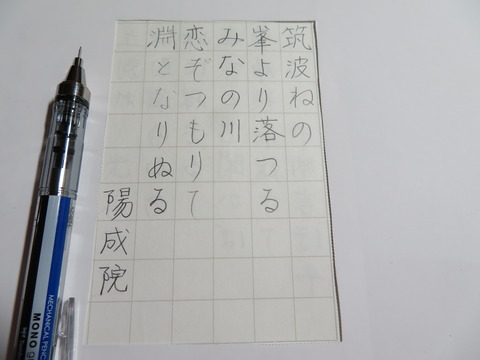 筑波ねの
峯より落つる
みなの川
恋ぞつもりて
淵となりぬる
陽成院
MECHANICAL PENC
MONO g